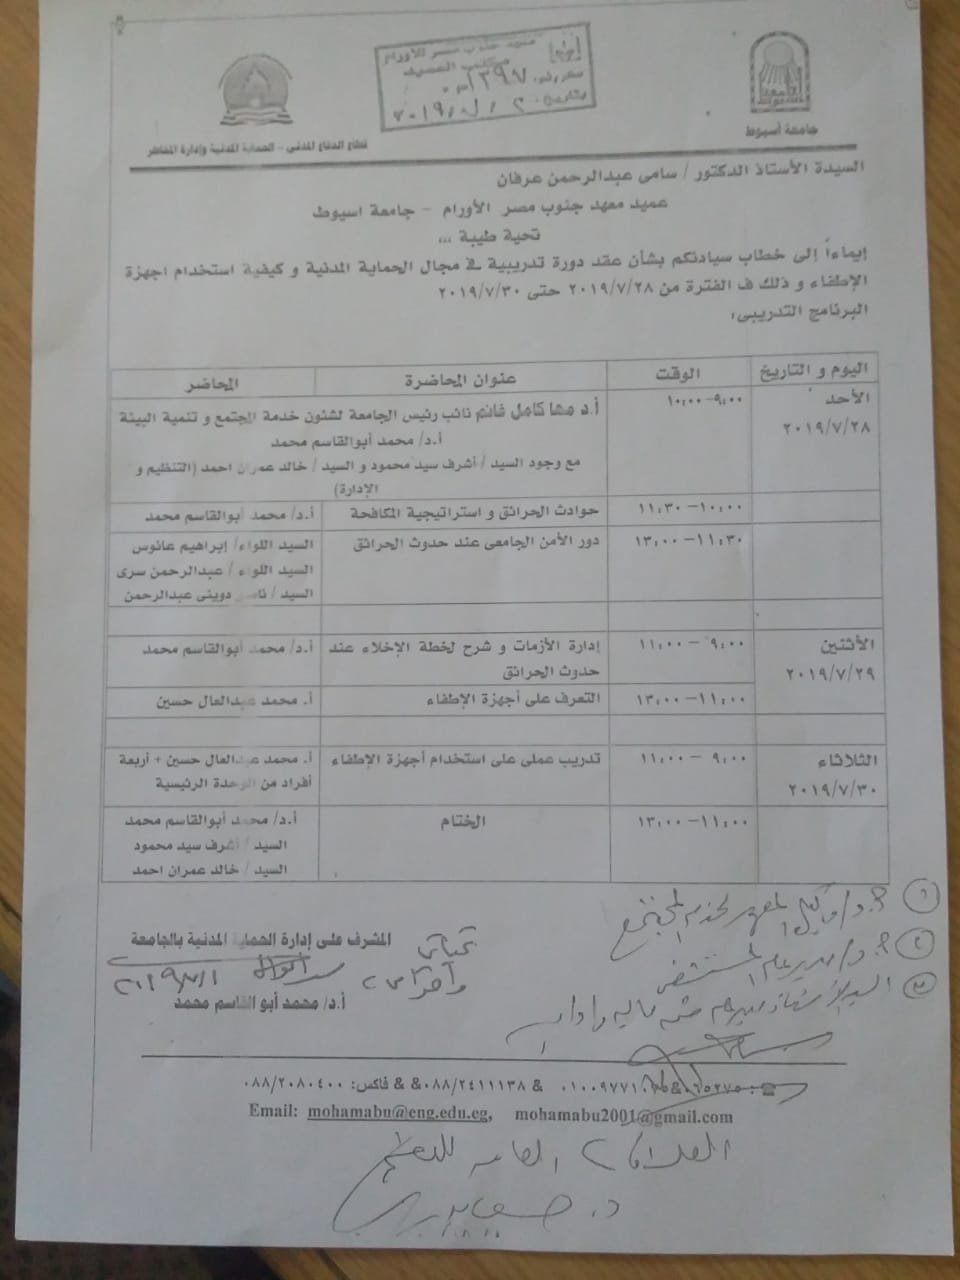 معهد جنوب مصر للأورام
مكتب العميد
جامعة أسيوط
قطاع الدفاع المدنى - الحماية المدنية وإدارة المخاطر
السيدة الأستاذ الدكتور / سامى عبدالرحمن عرفان
عميد معهد جنوب مصر الأورام - جامعة اسيوط
تحية طيبة ...
إيماءاً إلى خطاب سيادتكم بشأن عقد دورة تدريبية في مجال الحماية المدنية و كيفية استخدام اجهزة
الإطفاء و ذلك ف الفترة من ٢٠١٩/٧/٢٨ حتى ٢٠١٩/٧/٣٠
البرنامج التدريبى:
اليوم و التاريخ الوقت عنوان المحاضرة المحاضر
الأحد ٩,٠٠-١٠,٠٠ أ.د مها كامل غانم نائب رئيس الجامعة لشئون خدمة المجتمع و تنمية البيئة
٢٠١٩/٧/٢٨ أ.د/ محمد أبوالقاسم محمد
مع وجود السيد / أشرف سيد محمود و السيد / خالد عمران احمد (التنظيم و
الإدارة)
١٠,٠٠-١١,٣٠ حوادث الحرائق و استراتيجية المكافحة أ.د/ محمد أبوالقاسم محمد
١١,٣٠-١٣,٠٠ دور الأمن الجامعى عند حدوث الحرائق السيد اللواء/ إبراهيم عانوس
السيد اللواء / عبدالرحمن سرى
السيد / ناصر دوينى عبدالرحمن
الأثنين ٩,٠٠-١١,٠٠ إدارة الأزمات و شرح لخطة الإخلاء عند أ.د/ محمد أبوالقاسم محمد
٢٠١٩/٧/٢٩ حدوث الحرائق
١١,٠٠-١٣,٠٠ التعرف على أجهزة الإطفاء أ. محمد عبدالعال حسين
الثلاثاء ٩,٠٠-١١,٠٠ تدريب عملى على استخدام أجهزة الإطفاء أ. محمد عبدالعال حسين + أربعة
٢٠١٩/٧/٣٠ أفراد من الوحدة الرئيسية
١١,٠٠-١٣,٠٠ الختام أ.د/ محمد أبوالقاسم محمد
السيد / أشرف سيد محمود
السيد / خالد عمران احمد
المشرف على إدارة الحماية المدنية بالجامعة
أ.د/ محمد أبو القاسم محمد
& ٠٨٨/٢٤١١١٣٨ & & فاكس: ٠٨٨/٢٠٨٠٤٠٠
Email: mohamabu@eng.edu.eg, mohamabu2001@gmail.com